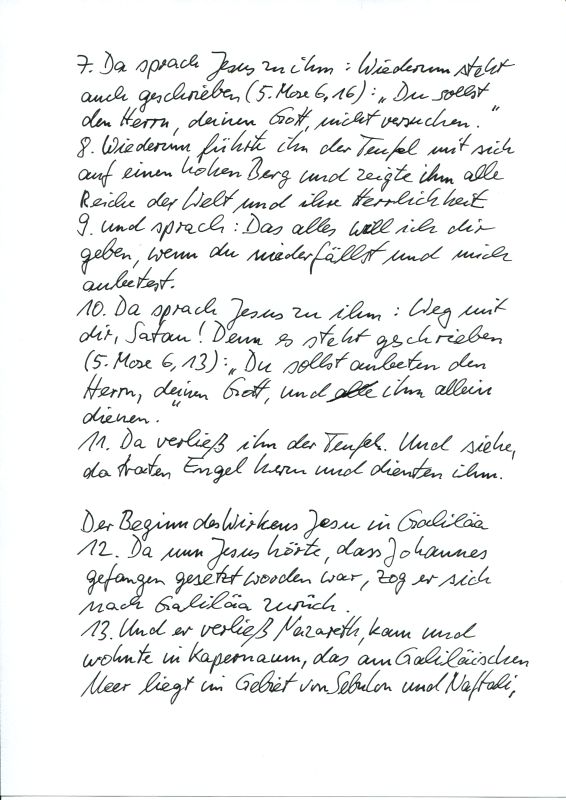 7. Da sprach Jesus zu ihm : Wiederum steht
auch geschrieben (5. Mose 6, 16) : „Du sollst
den Herrn, deinen Gott, nicht versuchen.“
8. Wiederum führte ihn der Teufel mit sich
auf einen hohen Berg und zeigte ihm alle
Reiche der Welt und ihre Herrlichkeit
9. und sprach : Das alles will ich dir
geben, wenn du niederfällst und mich
anbetest.
10. Da sprach Jesus zu ihm : Weg mit
dir, Satan! Denn es steht geschrieben
(5. Mose 6, 13) : „Du sollst anbeten den
Herrn, deinen Gott, und ihm allein
dienen.“
11. Da verließ ihn der Teufel. Und siehe,
da traten Engel herzu und dienten ihm.
Der Beginn des Wirkens Jesu in Galiläa
12. Da nun Jesus hörte, dass Johannes
gefangen gesetzt worden war, zog er sich
nach Galiläa zurück.
13. Und er verließ Nazareth, kam und
wohnte in Kapernaum, das am Galiläischen
Meer liegt im Gebiet von Sebulon und Naftali,